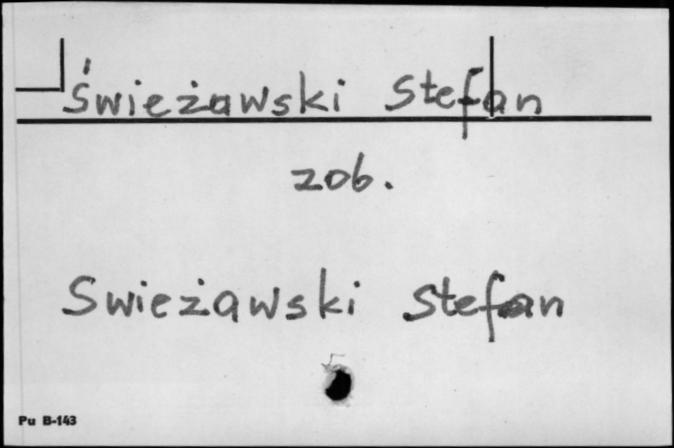 Świeżawski Stefan
zob.
Swieżawski Stefan
Pu B-143